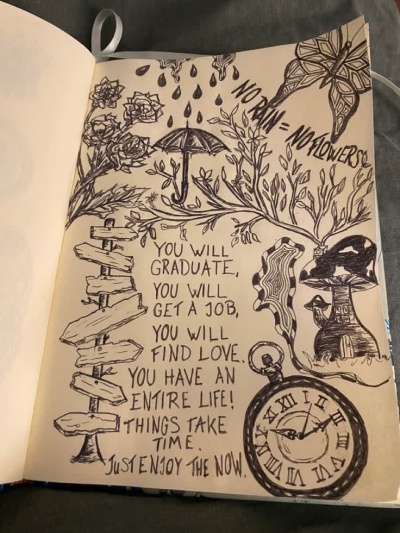 NO RAIN = NO FLOWERS
YOU WILL
GRADUATE,
YOU WILL
GET A JOB,
YOU WILL
FIND LOVE.
YOU HAVE AN
ENTIRE LIFE!
THINGS TAKE
TIME.
JUST ENJOY THE NOW.
XII I II III IV V VI VII VIII IX X XI